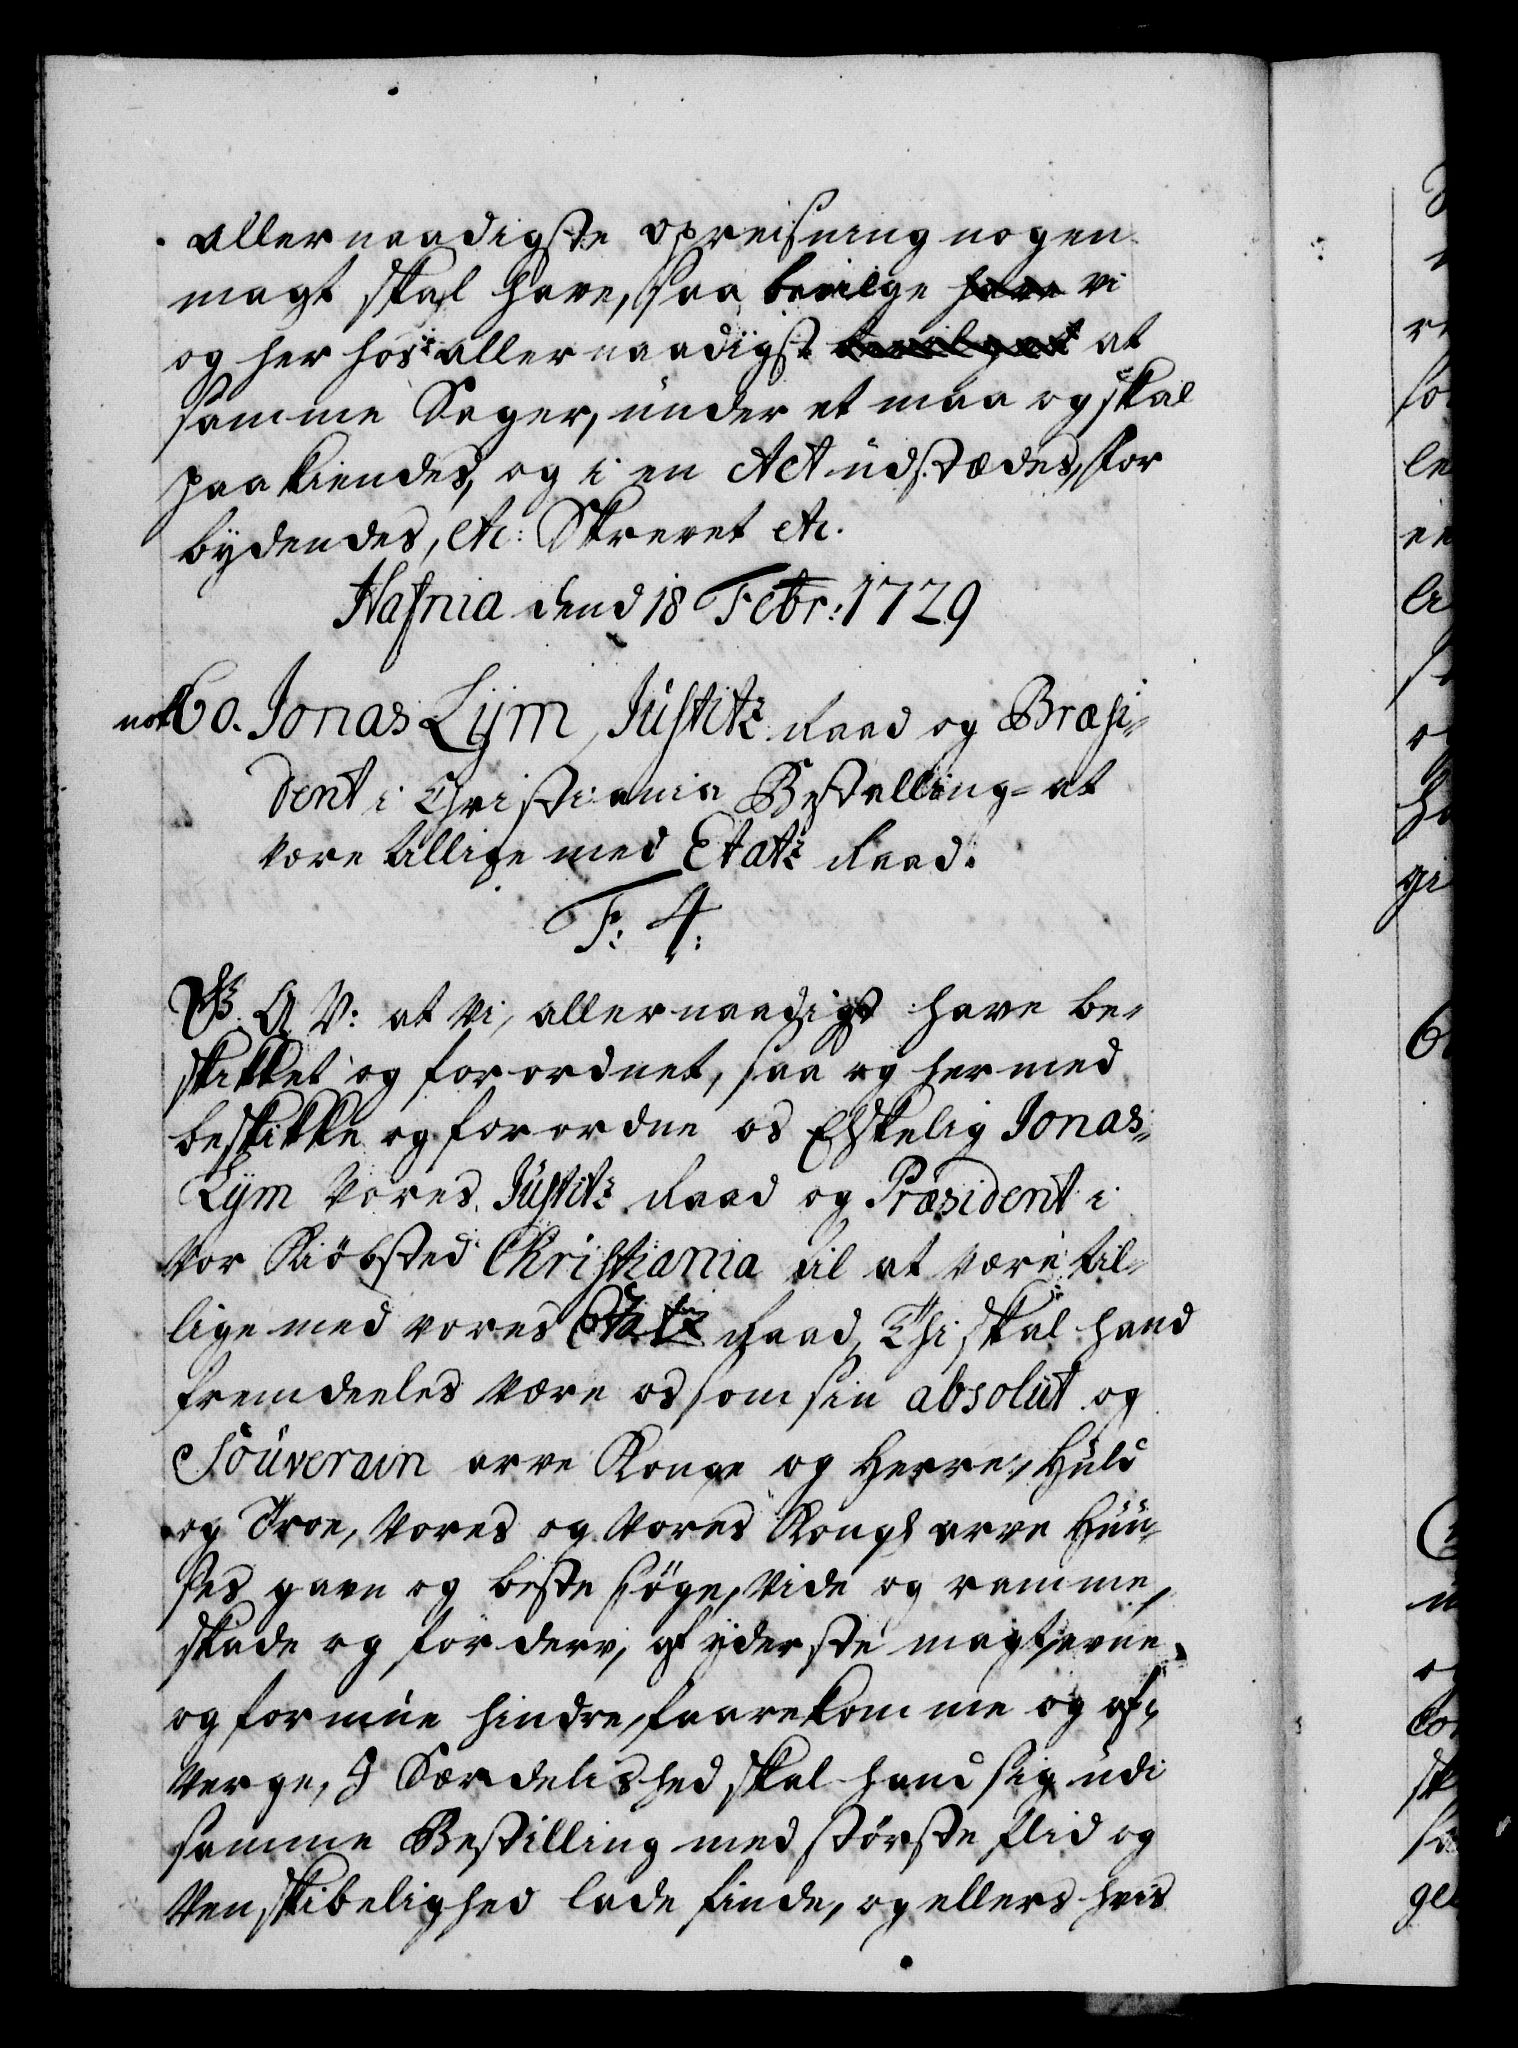 allernaadigste opreisning nogen
magt skal have, saa bevilge have vi
og her hos allernaadigst bevilget at
samme Sager, under et maa og skal
paakiendes, og i en Act udstædes, for
bydendes, etc: Skrevet etc.
Hafnia dend 18 Febr: 1729
not 60. Jonas Lÿm, Justitz Raad og Præsi-
dent i Christiania Bestalling at
være tillige med Etatz Raad.
F: 4:
G. A V: at Vi, allernaadigst have be-
skikket og forordnet, saa og hermed
beskikke og forordne os Elskelig Jonas
Lÿm Vores Justitz Raad og Præsident i
vor Kiöbsted Christiania til at være til-
lige med vores Etatz Raad, Thi skal hand
fremdeeles være os som sin absolut og
Souverain arve Konge og Herre, Huld
og Troe, Vores og Vores Kongl arve Huu-
ses gavn og beste söge, vide og ramme,
skade og forderv, af yderste magt, evne
og formue hindre, faarekomme og af-
verge, I Særdelished skal hand sig udi
samme Bestilling med störste flid og
Venskibelighed lade finde, og ellers hvis